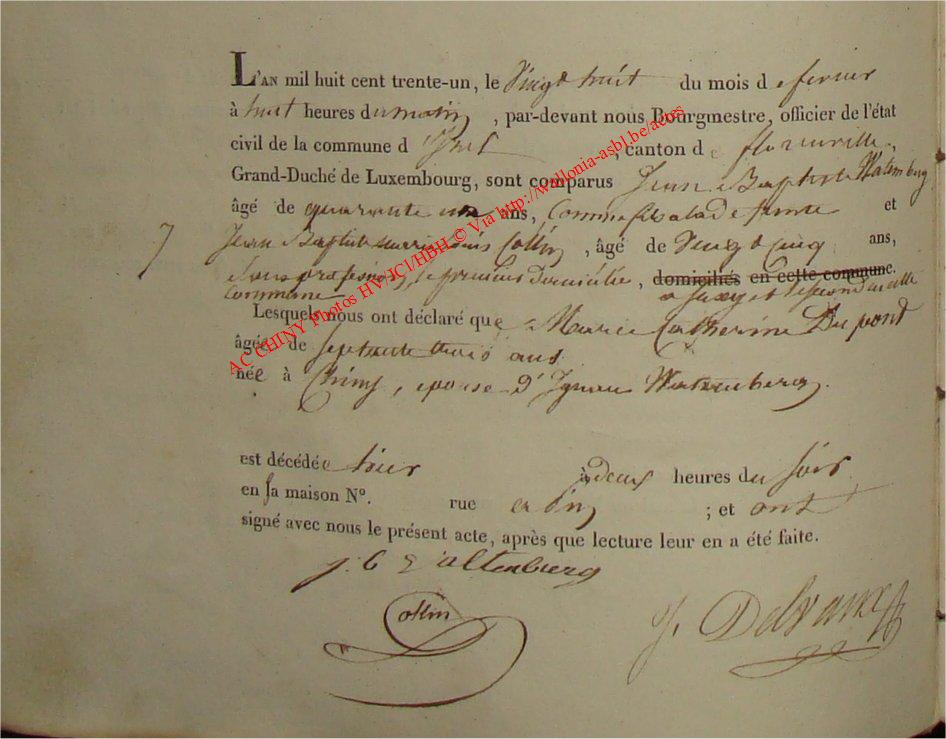 L'AN mil huit cent trente-un, le Vingt huit du mois de fevrier
à huit heures du matin, par-devant nous Bourgmestre, officier de l'état
civil de la commune d'Izel, canton de florenville,
Grand-Duché de Luxembourg, sont comparus Jean Baptiste Waltemburg
âgé de quarante ans, et
7 Jean Baptiste Collin, âgé de Vingt Cinq ans,
Sans profession, le premier domicilié, domiciliés en cette commune.
a Jusy et le second en cette
Commune
Lesquels nous ont déclaré que Marie Catherine Dupont
âgée de Septante trois ans
née à Chiny, epouse d'Ignace Waltemberg.
est décédée hier à deux heures du soir
en sa maison N°. rue ; et ont
signé avec nous le présent acte, après que lecture leur en a été faite.
J. B Waltenburg
Collin
J. Delvaux
AC CHINY Photos HV/JCl/HBH © Via http://wallonia-asbl.be/actes